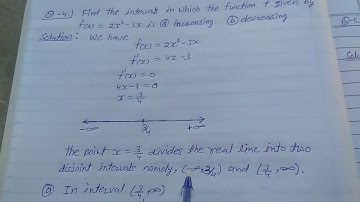 Q-4) Find the intervals in which the function f given by
f(x) = 2x² - 3x is ⓐ increasing ⓑ decreasing
Solution: We have
f(x) = 2x² - 3x
f'(x) = 4x - 3
f'(x) = 0
4x - 3 = 0
x = 3/4
-∞ 3/4 +∞
the point x = 3/4 divides the real line into two
disjoint intervals namely, (-∞, 3/4) and (3/4, ∞).
ⓐ In interval (3/4, ∞)